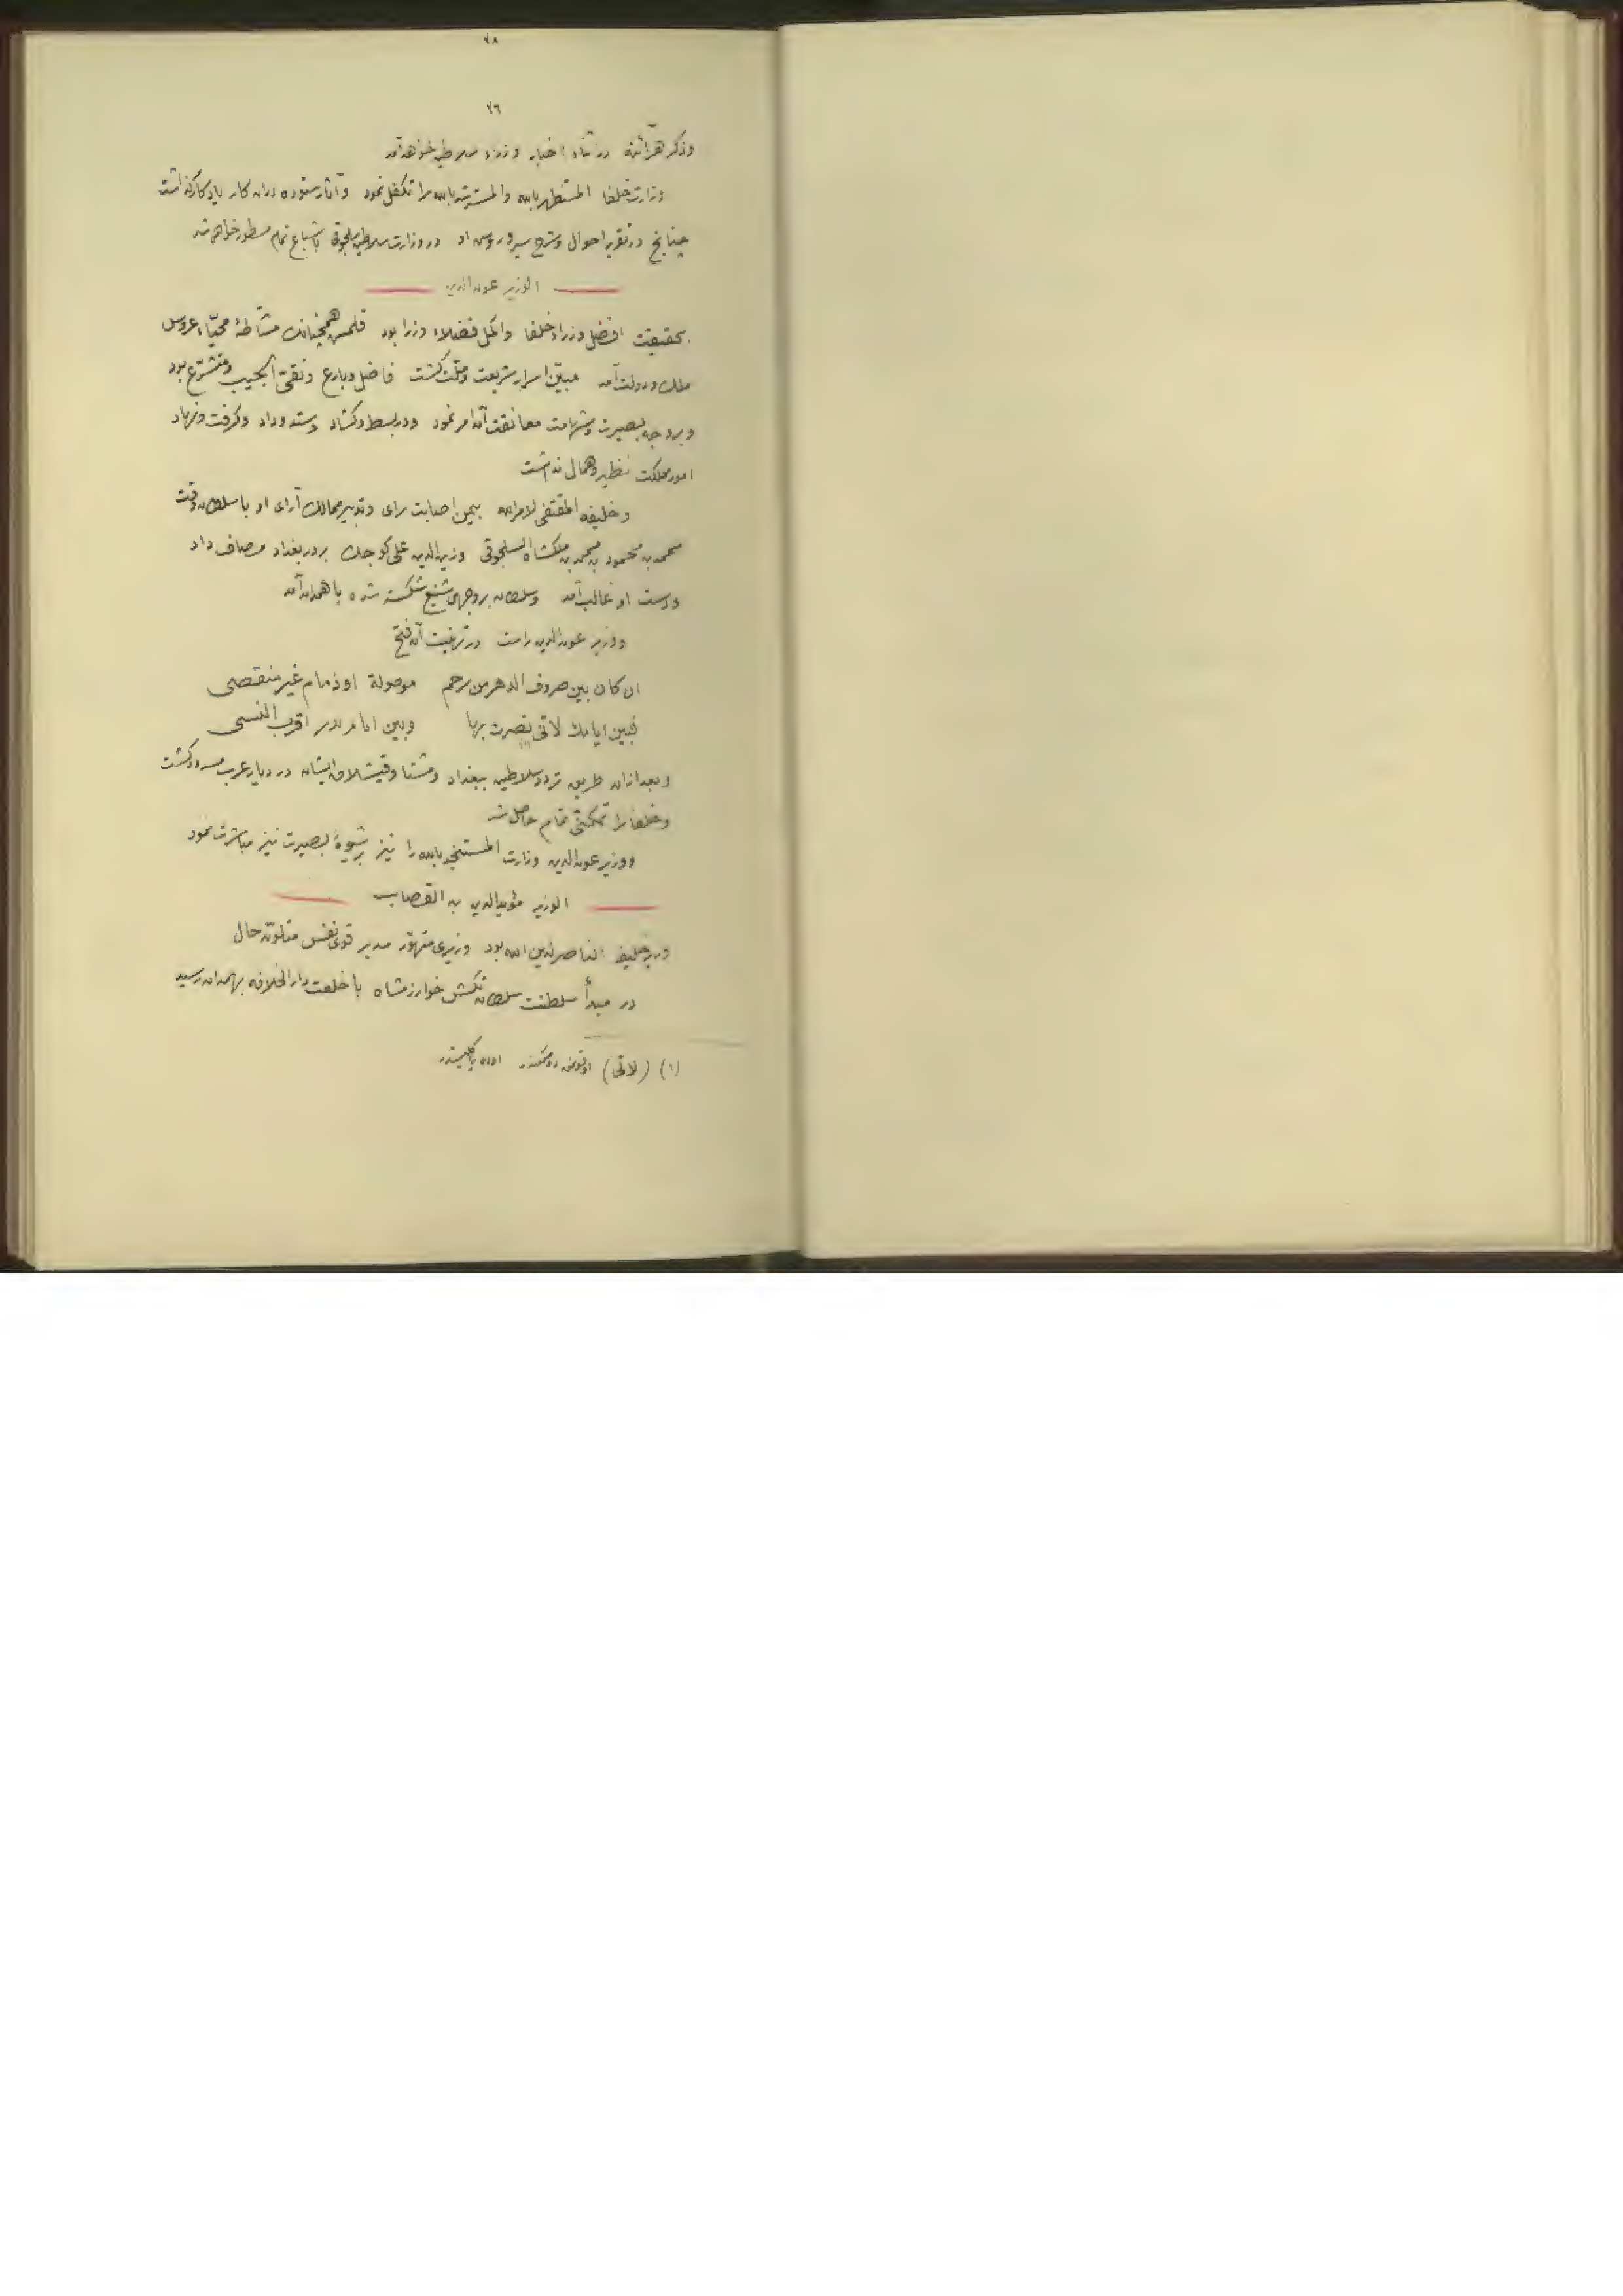 ٧٨
٧٦
وذكر هرآئنه در اثناء اخبار وزراء سلاطین خواهد آمد
وزارت خلفا المستظهر بالله والمسترشد بالله را تكفل نمود وآثار ستوده دران كار یادكار كذاشت
چنانچ در تقریر احوال وشرح سیر ورسوم او در وزارت سلاطین سلجوقی باشباع تمام مسطور خواهد شد
الوزیر عون الدین
بحقیقت افضل وزراء خلفا واكمل فضلاء وزرا بود قلمش همچنانك مشاطهٔ محیّاء عروس
ملك ودولت آمد مبیّن اسرار شریعت وملّت كشت فاضل وبارع ونقیّ الجیب ومتشرّع بود
وبر وجه بصیرت وشهامت معانقت آن امر نمود ودر بسط وكشاد وستد وداد وكرفت ونهاد
امور مملكت نظیر وهمال نداشت
وخلیفه المقتفی لامرالله بیمن اصابت رای وتدبیر ممالك آرای او با سلطان وقت
محمد بن محمود بن محمد بن ملكشاه السلجوقی وزین الدین علی كوچك بر در بغداد مصاف داد
ودست او غالب آمد وسلطان بر وجهی شنیع شكسته شده با همدان آمد
ووزیر عون الدین راست در ترتیب آن فتح
ان كان بین صروف الدهر من رحم موصولة او ذمام غیر منقصی
فبین ایامك لاتی نصرت بها وبین ایام بدر اقرب النسبی
وبعد ازان طریق تردد سلاطین ببغداد ومشتا وقیشلاق ایشان در دیار عرب مسدود كشت
وخلفا را تمكنی تمام حاصل شد
ووزیر عون الدین وزارت المستنجد بالله را نیز بر شیوهٔ بصیرت نیز مباشرت نمود
الوزیر مؤید الدین بن القصاب
وزیر خلیفه الناصر لدین الله بود وزیری متهوّر مدبر قوی نفس متلوّن حال
در مبدأ سلطنت سلطان تكش خوارزمشاه با خلعت دار الخلافه بهمدان رسید
(١) (لاتی)